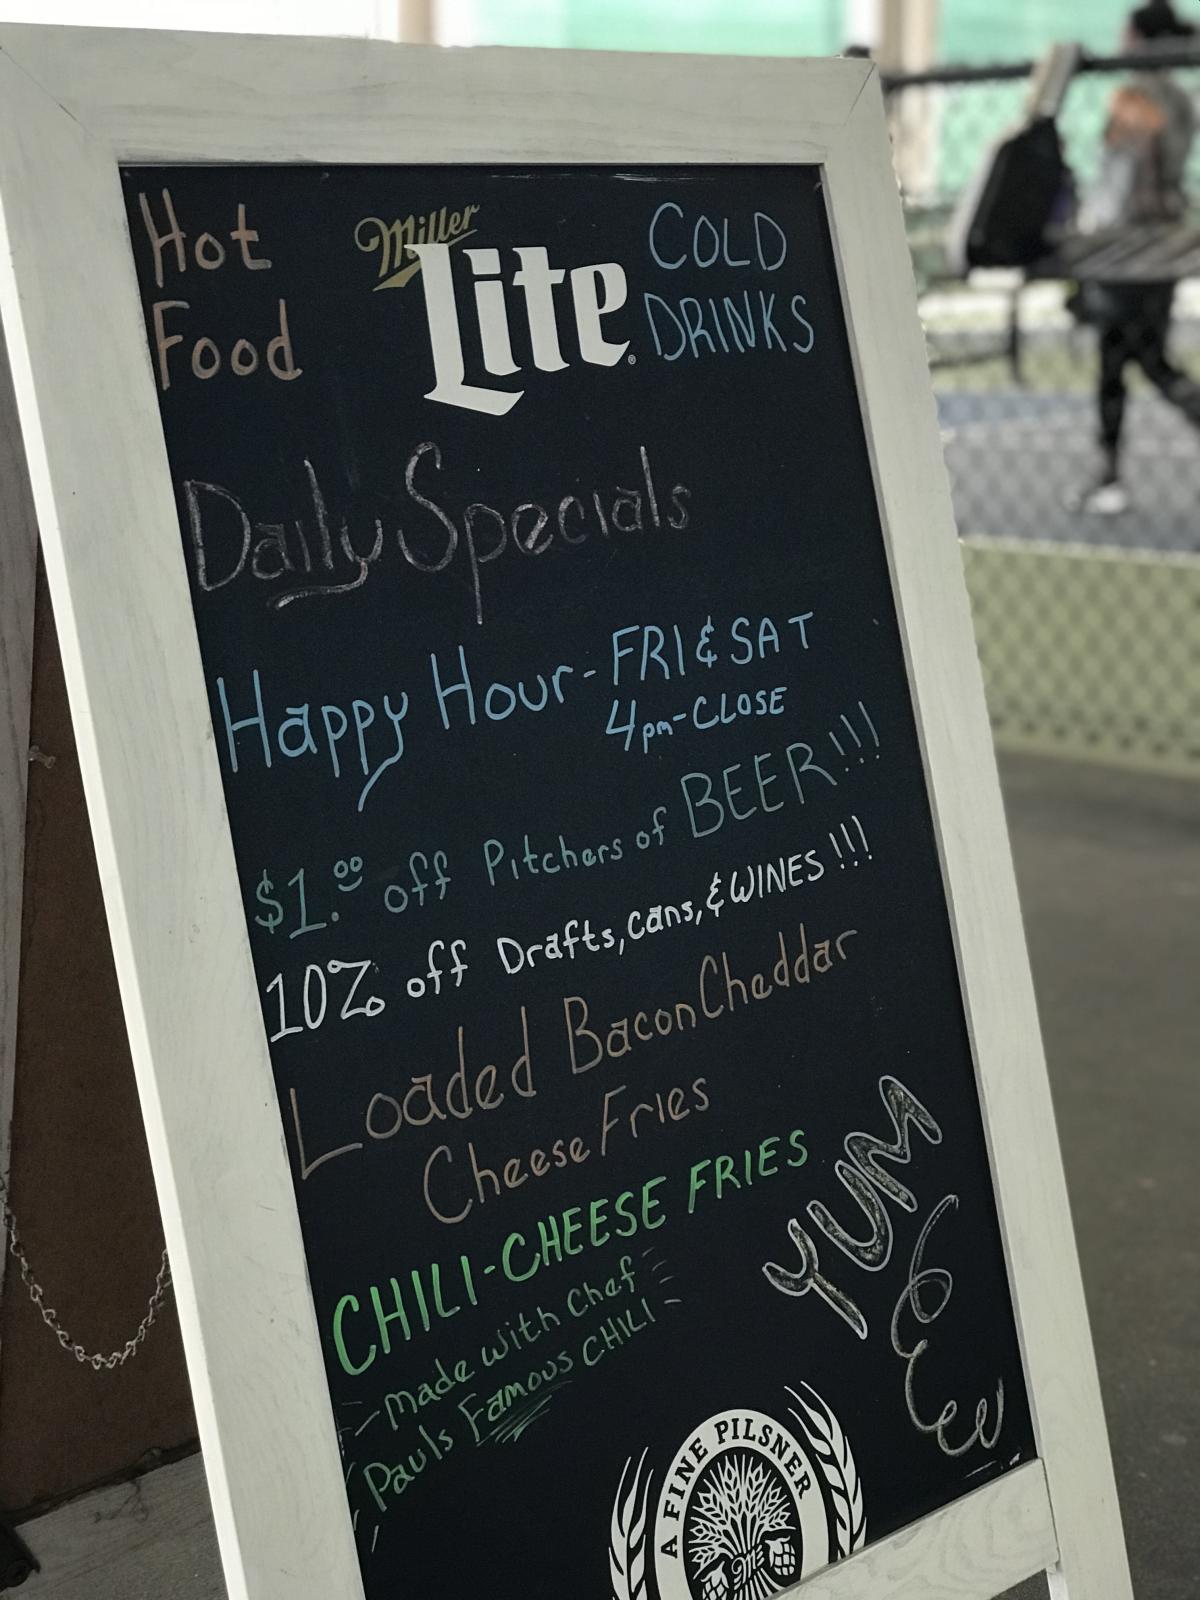 Hot
Food
Miller
Lite
COLD
DRINKS
Daily Specials
Happy Hour - FRI & SAT
4pm-CLOSE
$1.00 off Pitchers of BEER!!!
10% off Drafts, cans, & WINES!!!
Loaded Bacon Cheddar
Cheese Fries
CHILI-CHEESE FRIES
made with Chef
Pauls Famous CHILI
YUM
A FINE PILSNER